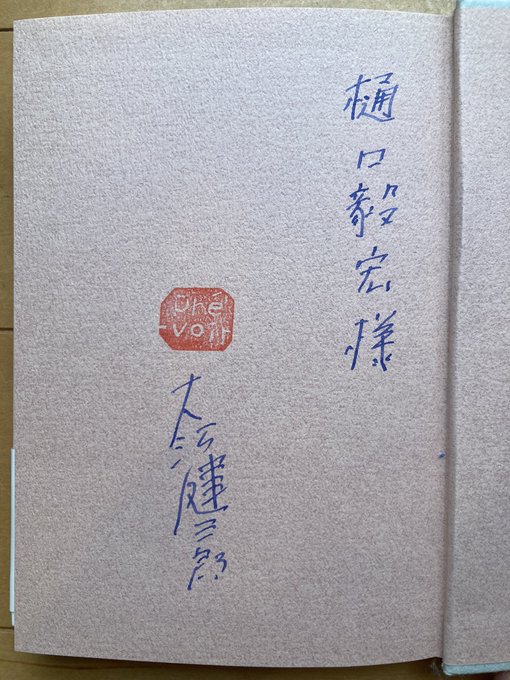 樋口毅宏様
大江健三郎